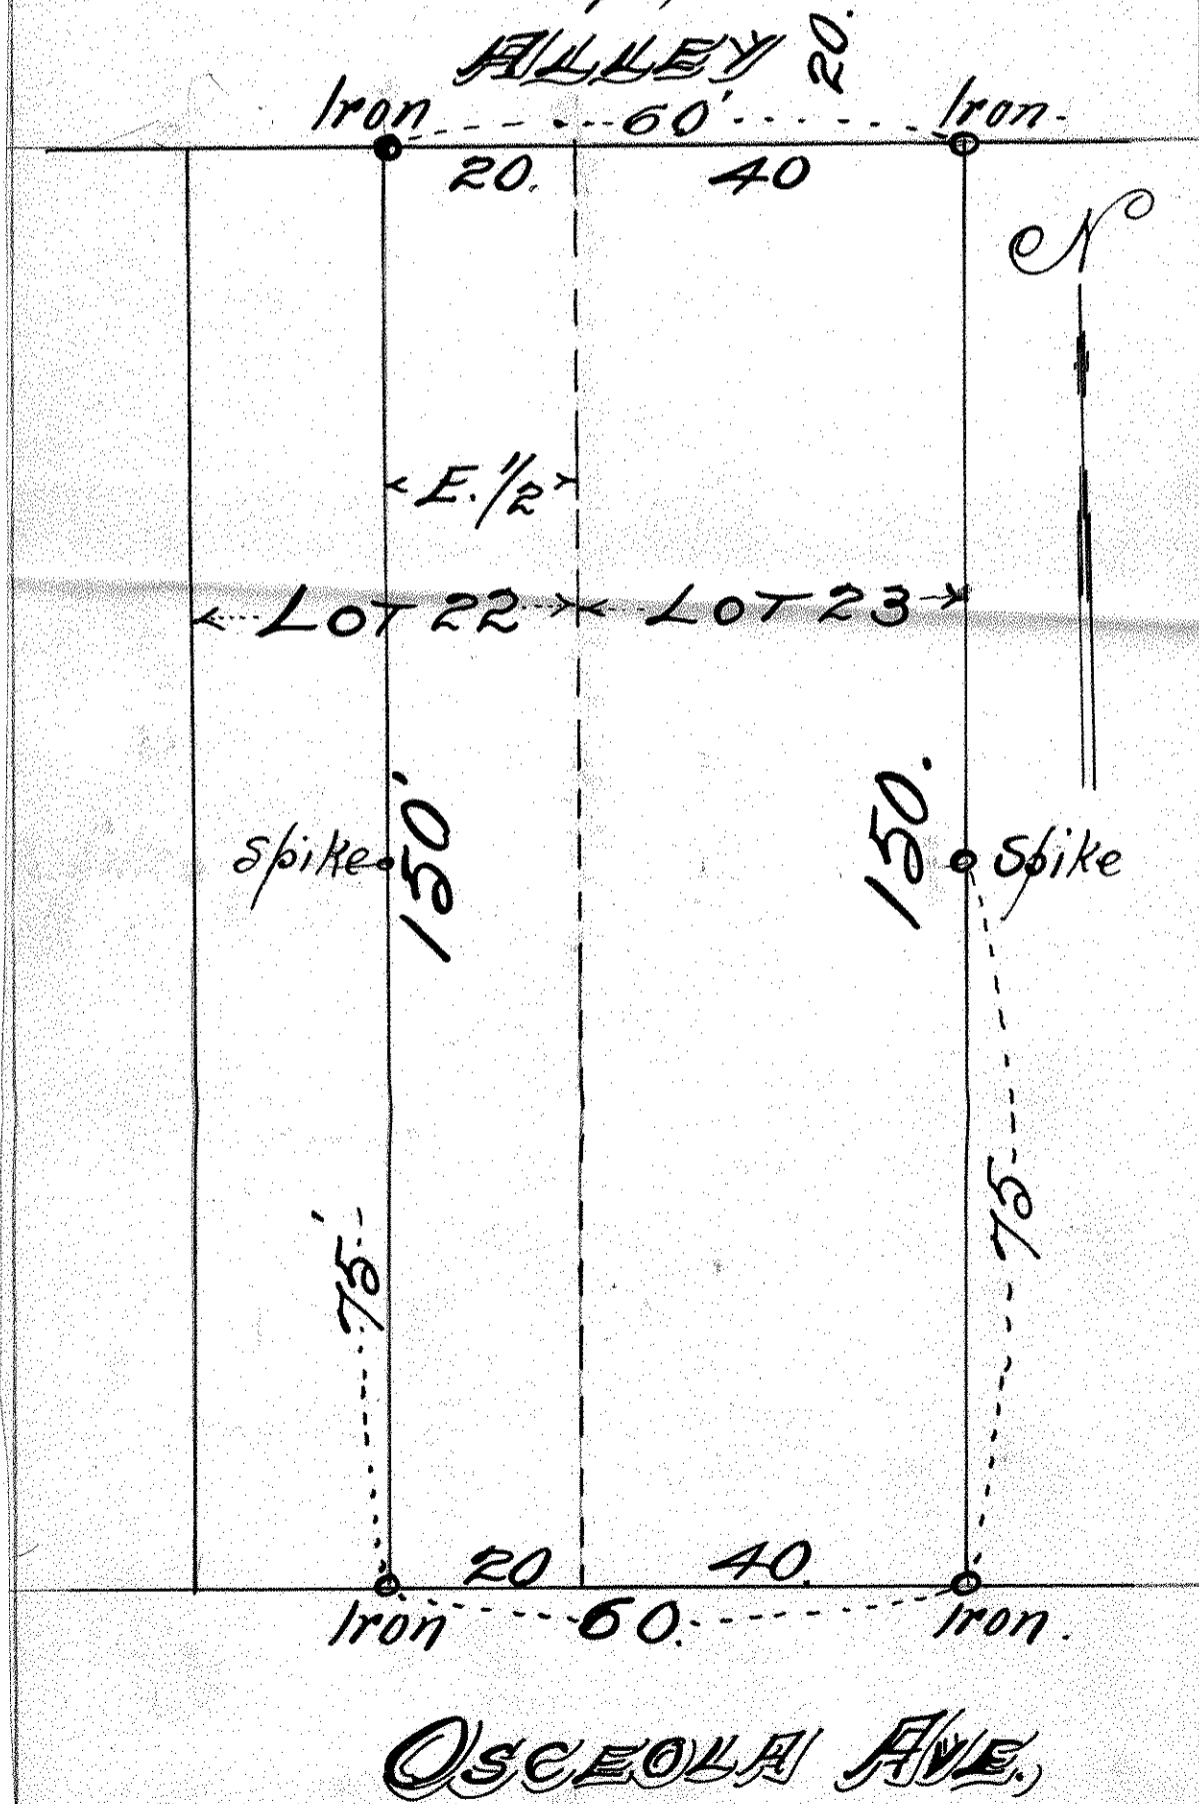 ALLEY 20.
Iron 60' Iron
20. 40
N
E. 1/2
LOT 22 LOT 23
150' 150.
Spike Spike
75' 75
20 40.
Iron 60. Iron.
OSCEOLA AVE.